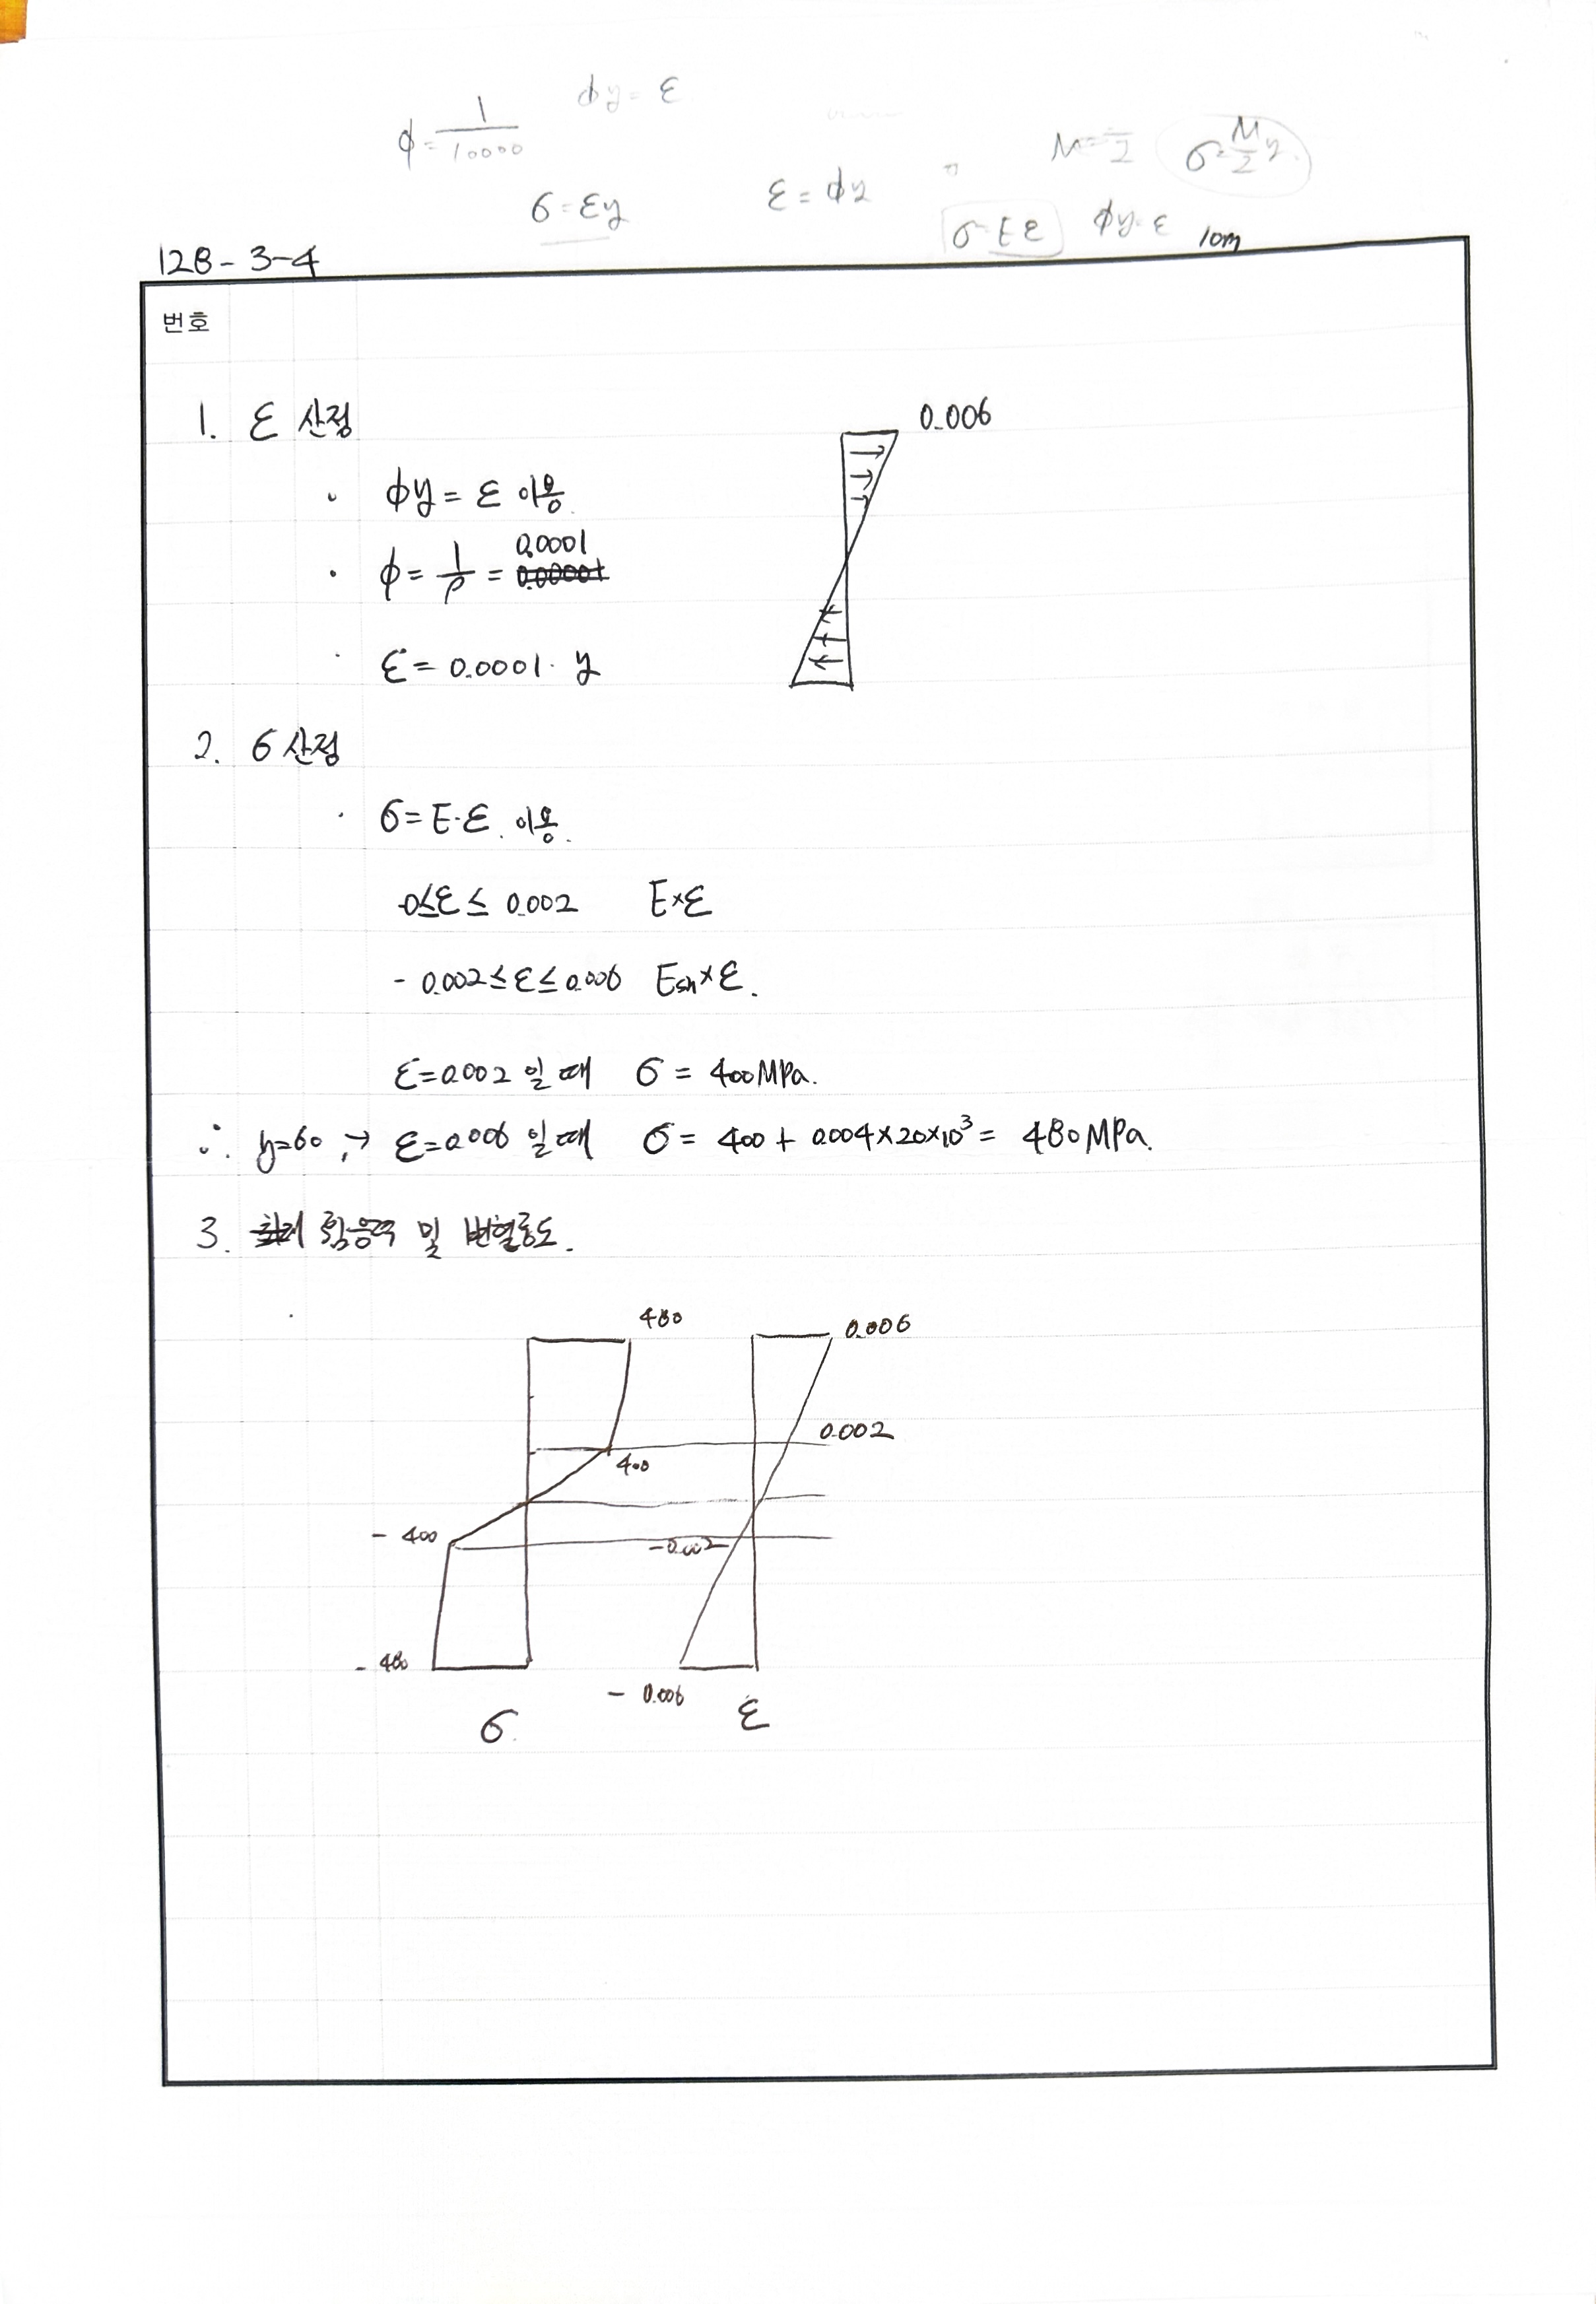 ϕ = 1/10000
ϕy = ε
σ = Ey
ε = ϕy
σ = Eε
ϕy = ε
10m
128 - 3-4
번호
1. ε 산정
0.006
· ϕy = ε 이용.
0.0001
· ϕ = 1/ρ = 0.00001
· ε = 0.0001 · y
2. σ 산정
· σ = E·ε. 이용.
- 0≤ε≤ 0.002 E×ε
- 0.002≤ε≤0.006 Esh×ε.
ε=0.002 일 때 σ = 400MPa.
∴ y=60, → ε=0.006 일 때 σ = 400 + 0.004×20×10³ = 480MPa.
3. 휨응력 및 변형률도.
480
0.006
0.002
400
- 400
-0.002
- 480
- 0.006
σ
ε